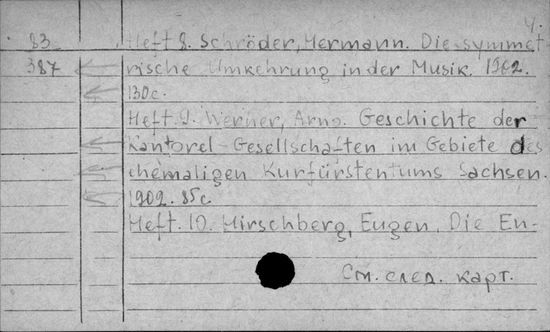 4.
83 Heft 8. Schröder, Hermann. Die symmet
387 rische Umkehrung in der Musik. 1902.
130с.
Heft 9. Werner, Arno. Geschichte der
Kantorei-Gesellschaften im Gebiete des
ehemaligen Kurfürstentums Sachsen.
1902. 85с.
Heft. 10. Hirschberg, Eugen. Die En-
См. след. карт.